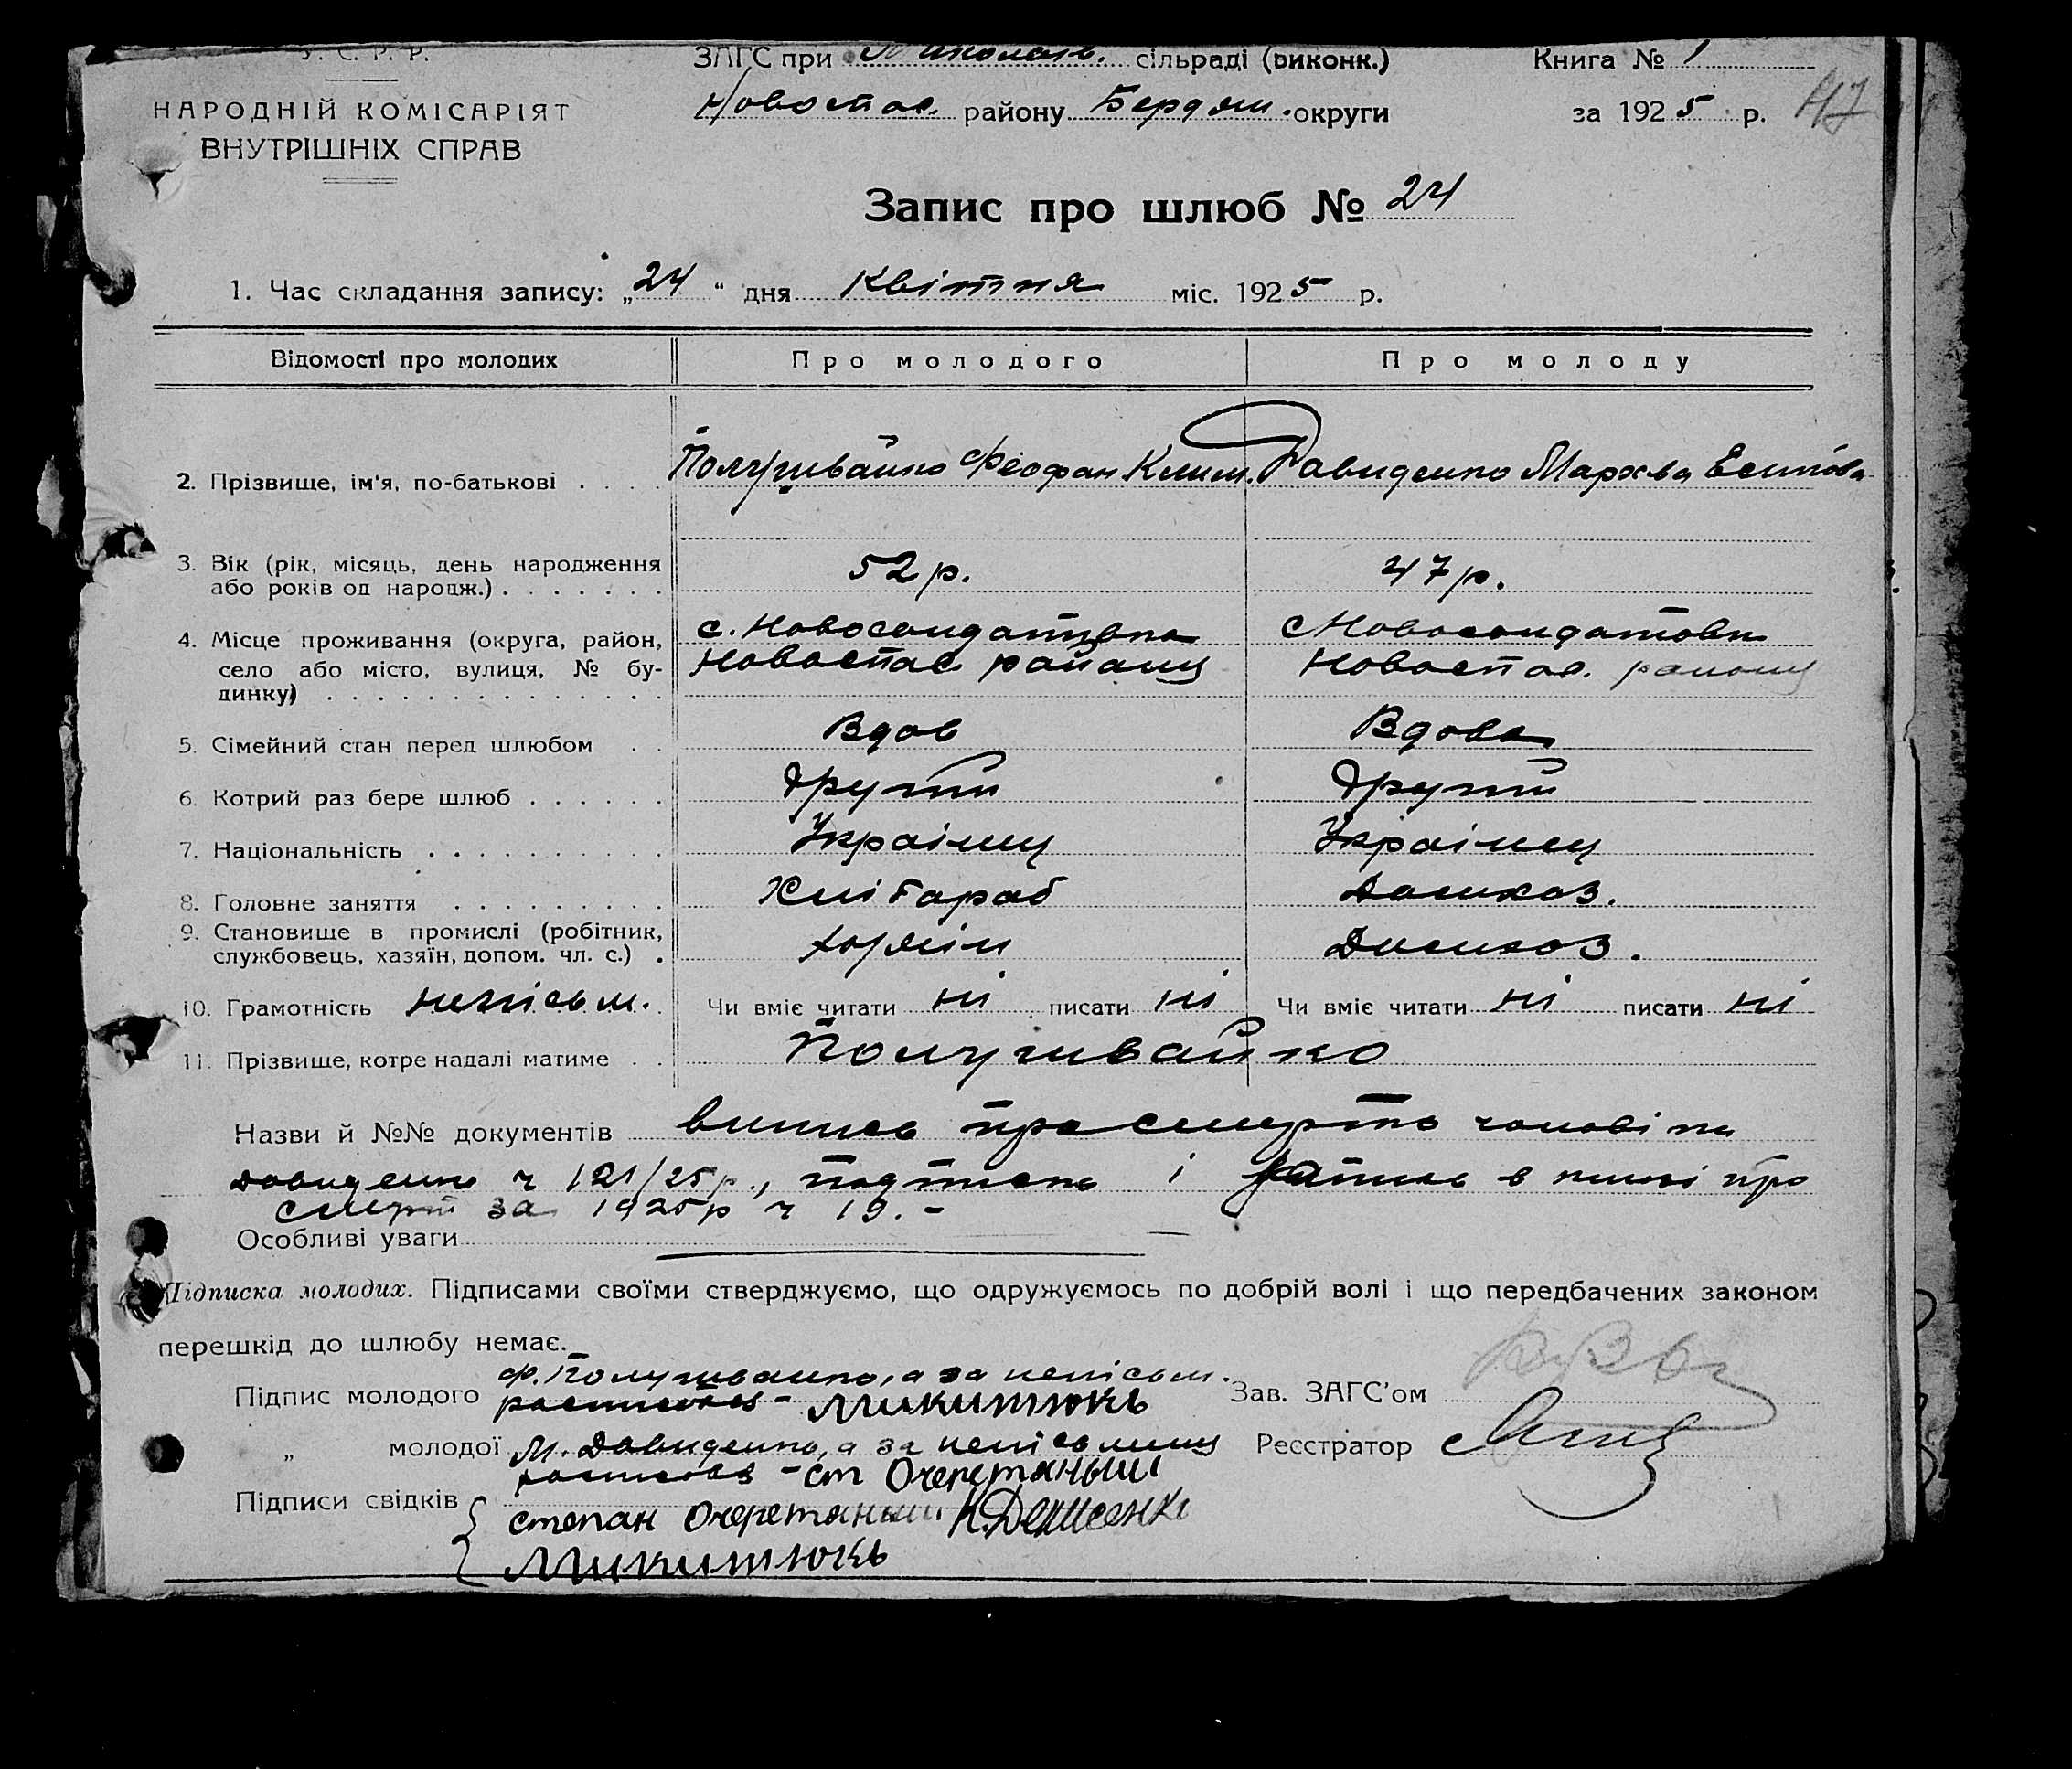 У. С. Р. Р.
НАРОДНІЙ КОМІСАРІЯТ
ВНУТРІШНІХ СПРАВ
ЗАГС при Миколаїв. сільраді (виконк.)
Новоспас. району Бердян. округи
Книга № 1
за 1925 р.
47
Запис про шлюб № 24
1. Час складання запису: „24" дня Квітня міс. 1925 р.
Відомості про молодих Про молодого Про молоду
2. Прізвище, ім'я, по-батькові . . . . Полушвайко Феофан Клим. Давиденко Мархва Есипова
3. Вік (рік, місяць, день народження
або років од народж.) . . . . . . . 52 р. 47 р.
4. Місце проживання (округа, район, с. Новосолдатівка с Новосолдатовка
село або місто, вулиця, № бу- Новоспас. району Новоспас. району
динку) . . . . . . . . . . . . . .
5. Сімейний стан перед шлюбом . . Вдов Вдова
6. Котрий раз бере шлюб . . . . . . другий другий
7. Національність . . . . . . . . . . Украінец Украінец
8. Головне заняття . . . . . . . . . Хлібараб Домхоз.
9. Становище в промислі (робітник,
службовець, хазяїн, допом. чл. с.) . Домхоз.
10. Грамотність непісьм. Чи вміє читати ні писати ні Чи вміє читати ні писати ні
11. Прізвище, котре надалі матиме . . Полушвайко
Назви й №№ документів випись про смерть чоловіка
Давиденко ч 121/25р., подписка і запись в книзі про
смерть за 1925р ч 19. -
Особливі уваги
Підписка молодих. Підписами своїми стверджуємо, що одружуємось по доброй волі і що передбачених законом
перешкід до шлюбу немає.
Підпис молодого Ф. Полушвайко, а за непісьм.
росписавсь - Микитюкъ
Зав. ЗАГС'ом
„ молодої М. Давиденко, а за непісьменну
росписавсь - ст Очеретаный
Реєстратор
Підписи свідків
степан Очеретаный К. Денисенко
Микитюкъ